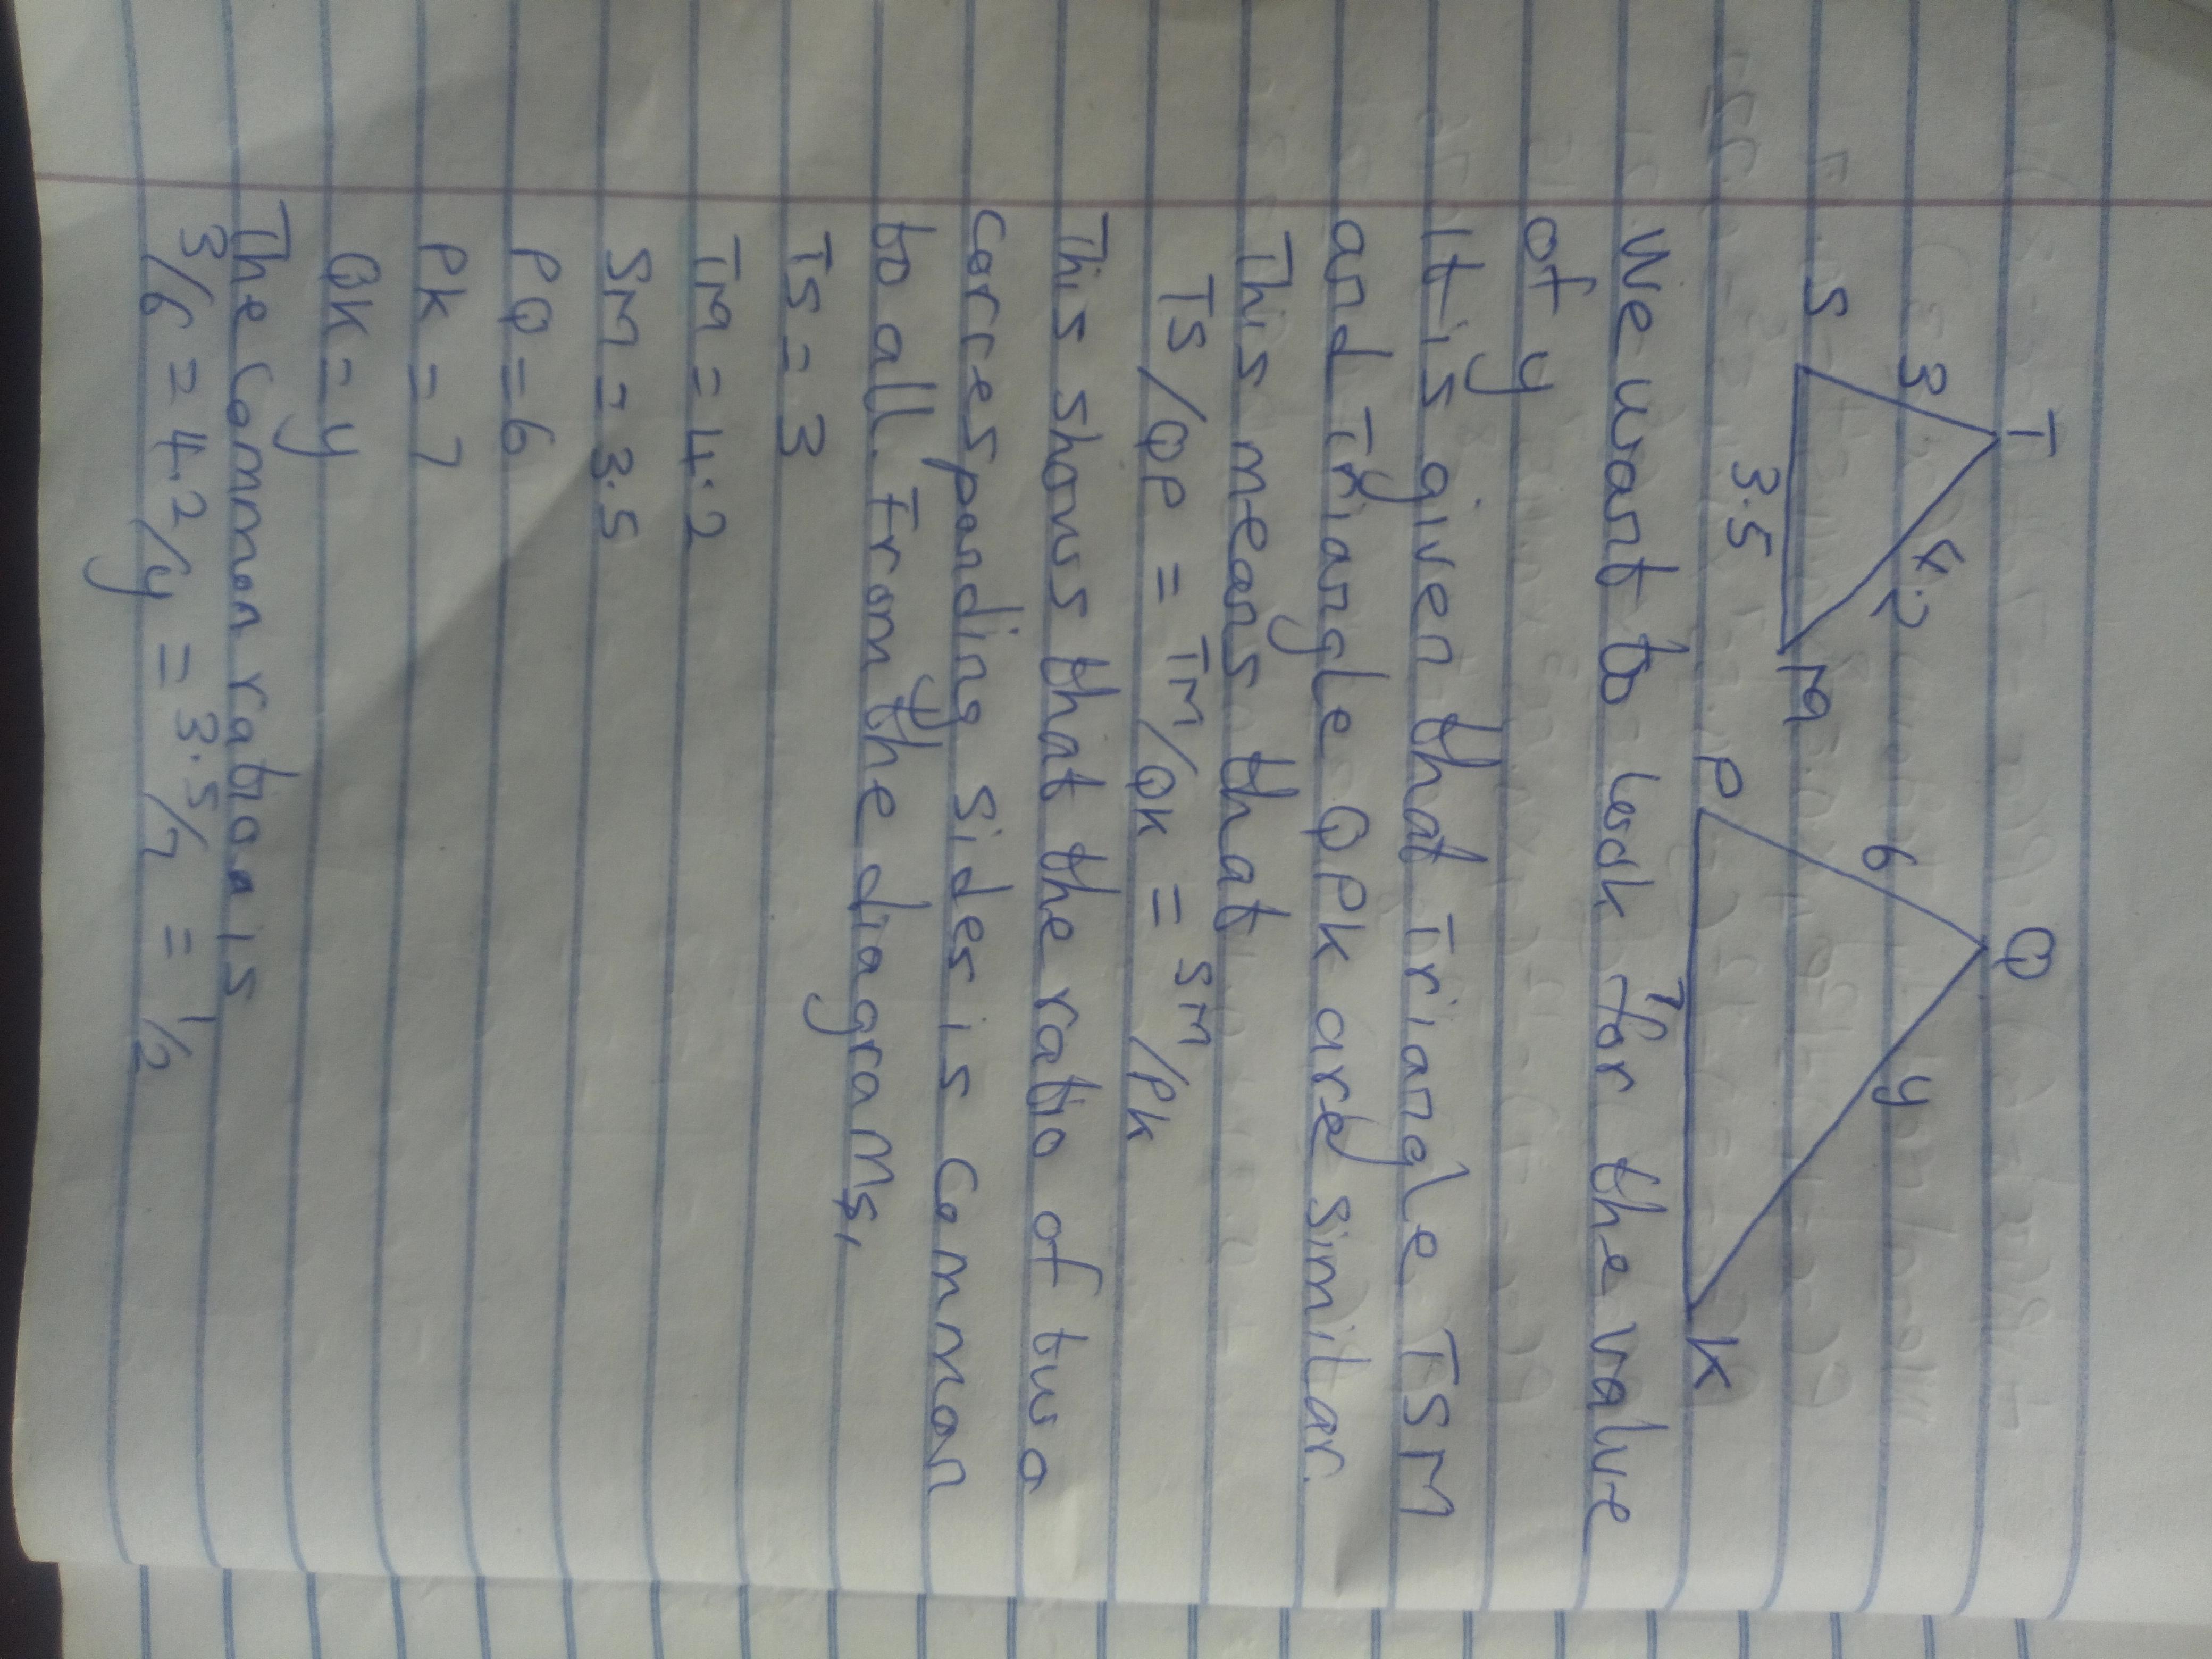 T Q
3 4.2 6 y
S M P K
3.5 7
We want to look for the value
of y
It is given that Triangle TSM
and Triangle QPK are similar.
This means that
TS/QP = TM/QK = SM/PK
This shows that the ratio of two
corresponding sides is common
to all. From the diagrams,
TS = 3
TM = 4.2
SM = 3.5
PQ = 6
PK = 7
QK = y
The common ratio is
3/6 = 4.2/y = 3.5/7 = 1/2